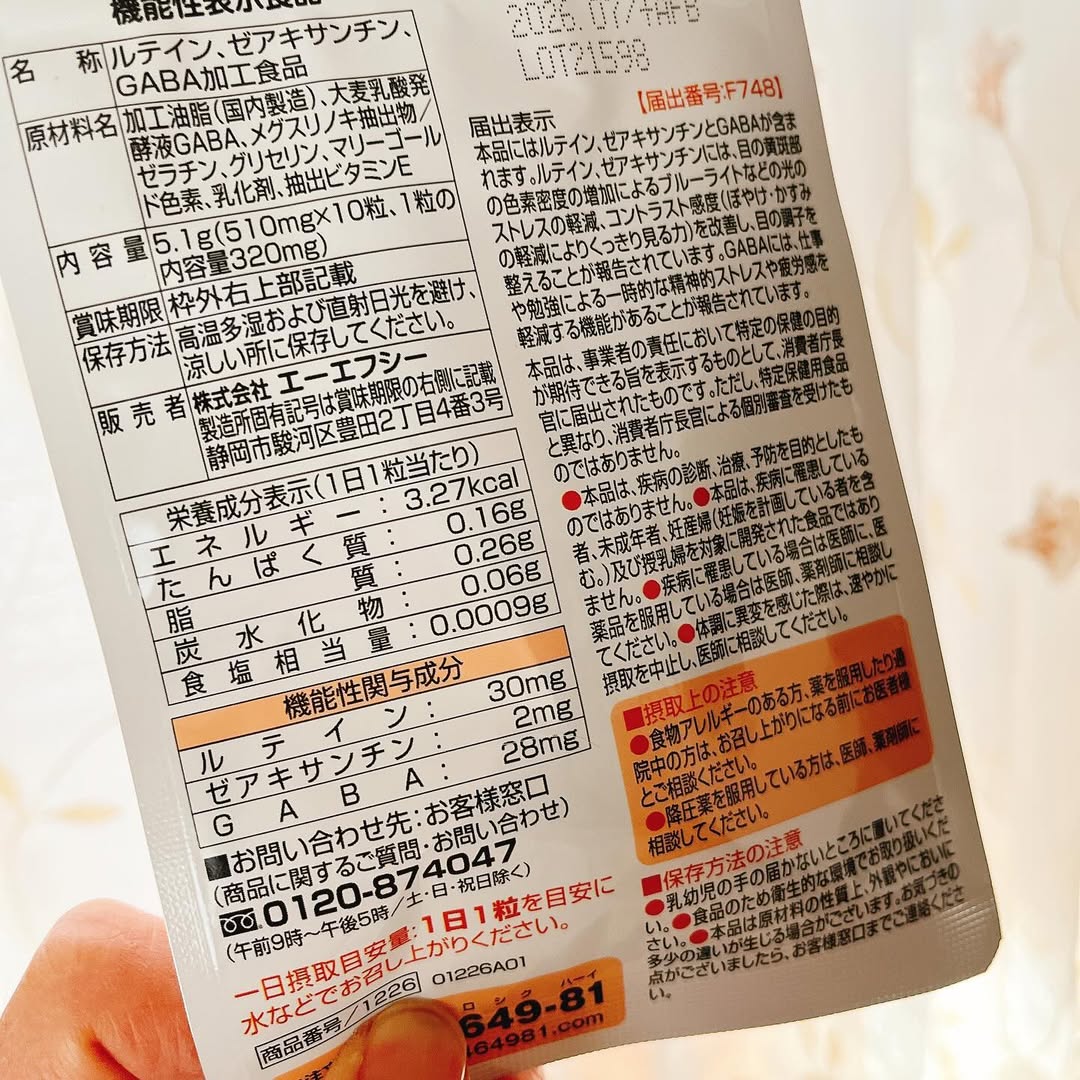 機能性表示食品
名称 ルテイン、ゼアキサンチン、
GABA加工食品
原材料名 加工油脂(国内製造)、大麦乳酸発
酵液GABA、メグスリノキ抽出物/
ゼラチン、グリセリン、マリーゴール
ド色素、乳化剤、抽出ビタミンE
内容量 5.1g(510mg×10粒、1粒の
内容量320mg)
賞味期限 枠外右上部記載
保存方法 高温多湿および直射日光を避け、
涼しい所に保存してください。
販売者 株式会社 エーエフシー
製造所固有記号は賞味期限の右側に記載
静岡市駿河区豊田2丁目4番3号
栄養成分表示(1日1粒当たり)
エネルギー: 3.27kcal
たんぱく質: 0.16g
脂質: 0.26g
炭水化物: 0.06g
食塩相当量: 0.0009g
機能性関与成分
ルテイン: 30mg
ゼアキサンチン: 2mg
GABA: 28mg
■お問い合わせ先:お客様窓口
(商品に関するご質問・お問い合わせ)
0120-874047
(午前9時~午後5時/土・日・祝日除く)
一日摂取目安量:1日1粒を目安に
水などでお召し上がりください。
商品番号/1226 01226A01
ロシク ハーイ
649-81
464981.com
2026.07/4AFB
LOT21598
【届出番号:F748】
届出表示
本品にはルテイン、ゼアキサンチンとGABAが含ま
れます。ルテイン、ゼアキサンチンには、目の黄斑部
の色素密度の増加によるブルーライトなどの光の
ストレスの軽減、コントラスト感度(ぼやけ・かすみ
の軽減によりくっきり見る力)を改善し、目の調子を
整えることが報告されています。GABAには、仕事
や勉強による一時的な精神的ストレスや疲労感を
軽減する機能があることが報告されています。
本品は、事業者の責任において特定の保健の目的
が期待できる旨を表示するものとして、消費者庁長
官に届出されたものです。ただし、特定保健用食品
と異なり、消費者庁長官による個別審査を受けたも
のではありません。
●本品は、疾病の診断、治療、予防を目的としたも
のではありません。●本品は、疾病に罹患している
者、未成年者、妊産婦(妊娠を計画している者を含
む。)及び授乳婦を対象に開発された食品ではあり
ません。●疾病に罹患している場合は医師に、医
薬品を服用している場合は医師、薬剤師に相談し
てください。●体調に異変を感じた際は、速やかに
摂取を中止し、医師に相談してください。
■摂取上の注意
●食物アレルギーのある方、薬を服用したり通
院中の方は、お召し上がりになる前にお医者様
とご相談ください。
●降圧薬を服用している方は、医師、薬剤師に
相談してください。
■保存方法の注意
●乳幼児の手の届かないところに置いてくださ
さい。●食品のため衛生的な環境でお取り扱いくだ
さい。●本品は原材料の性質上、外観やにおいに
多少の違いが生じる場合がございます。お気づきの
点がございましたら、お客様窓口までご連絡くださ
い。